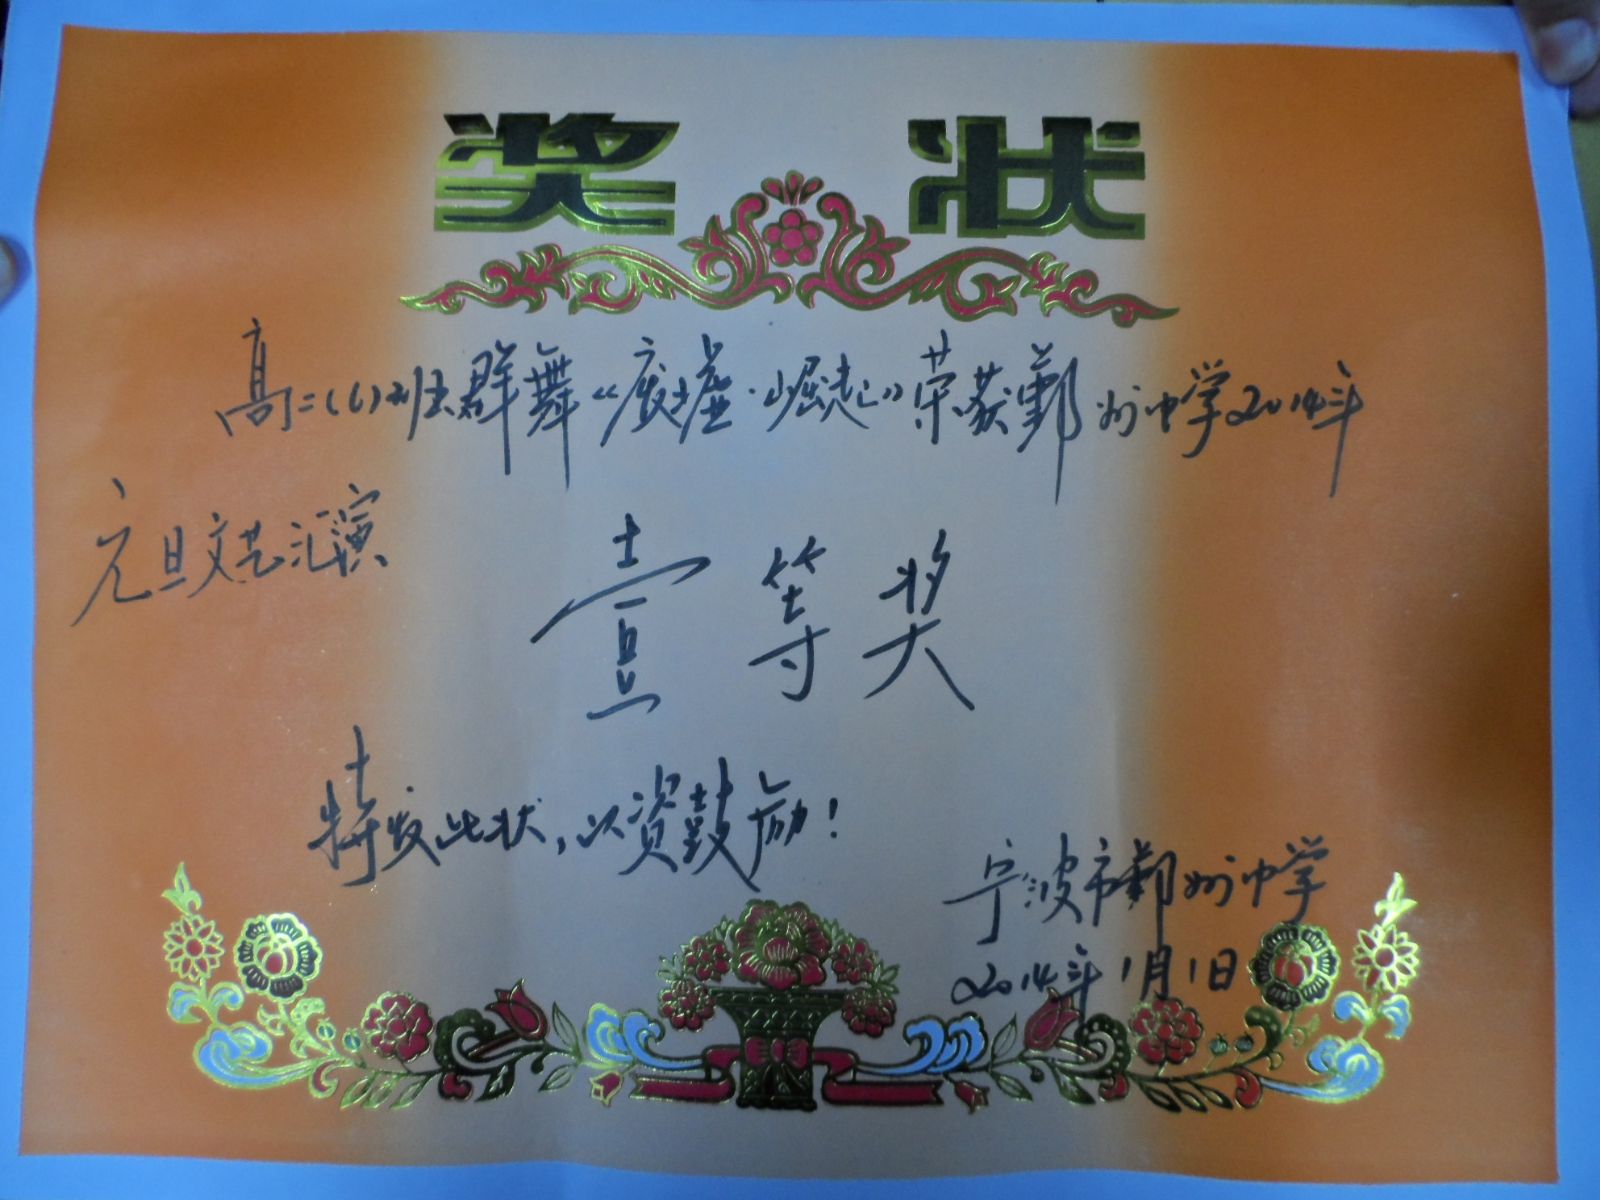 奖状
高二(6)班群舞《废墟·崛起》荣获鄞州中学2014年
元旦文艺汇演
壹等奖
特发此状，以资鼓励！
宁波市鄞州中学
2014年1月1日